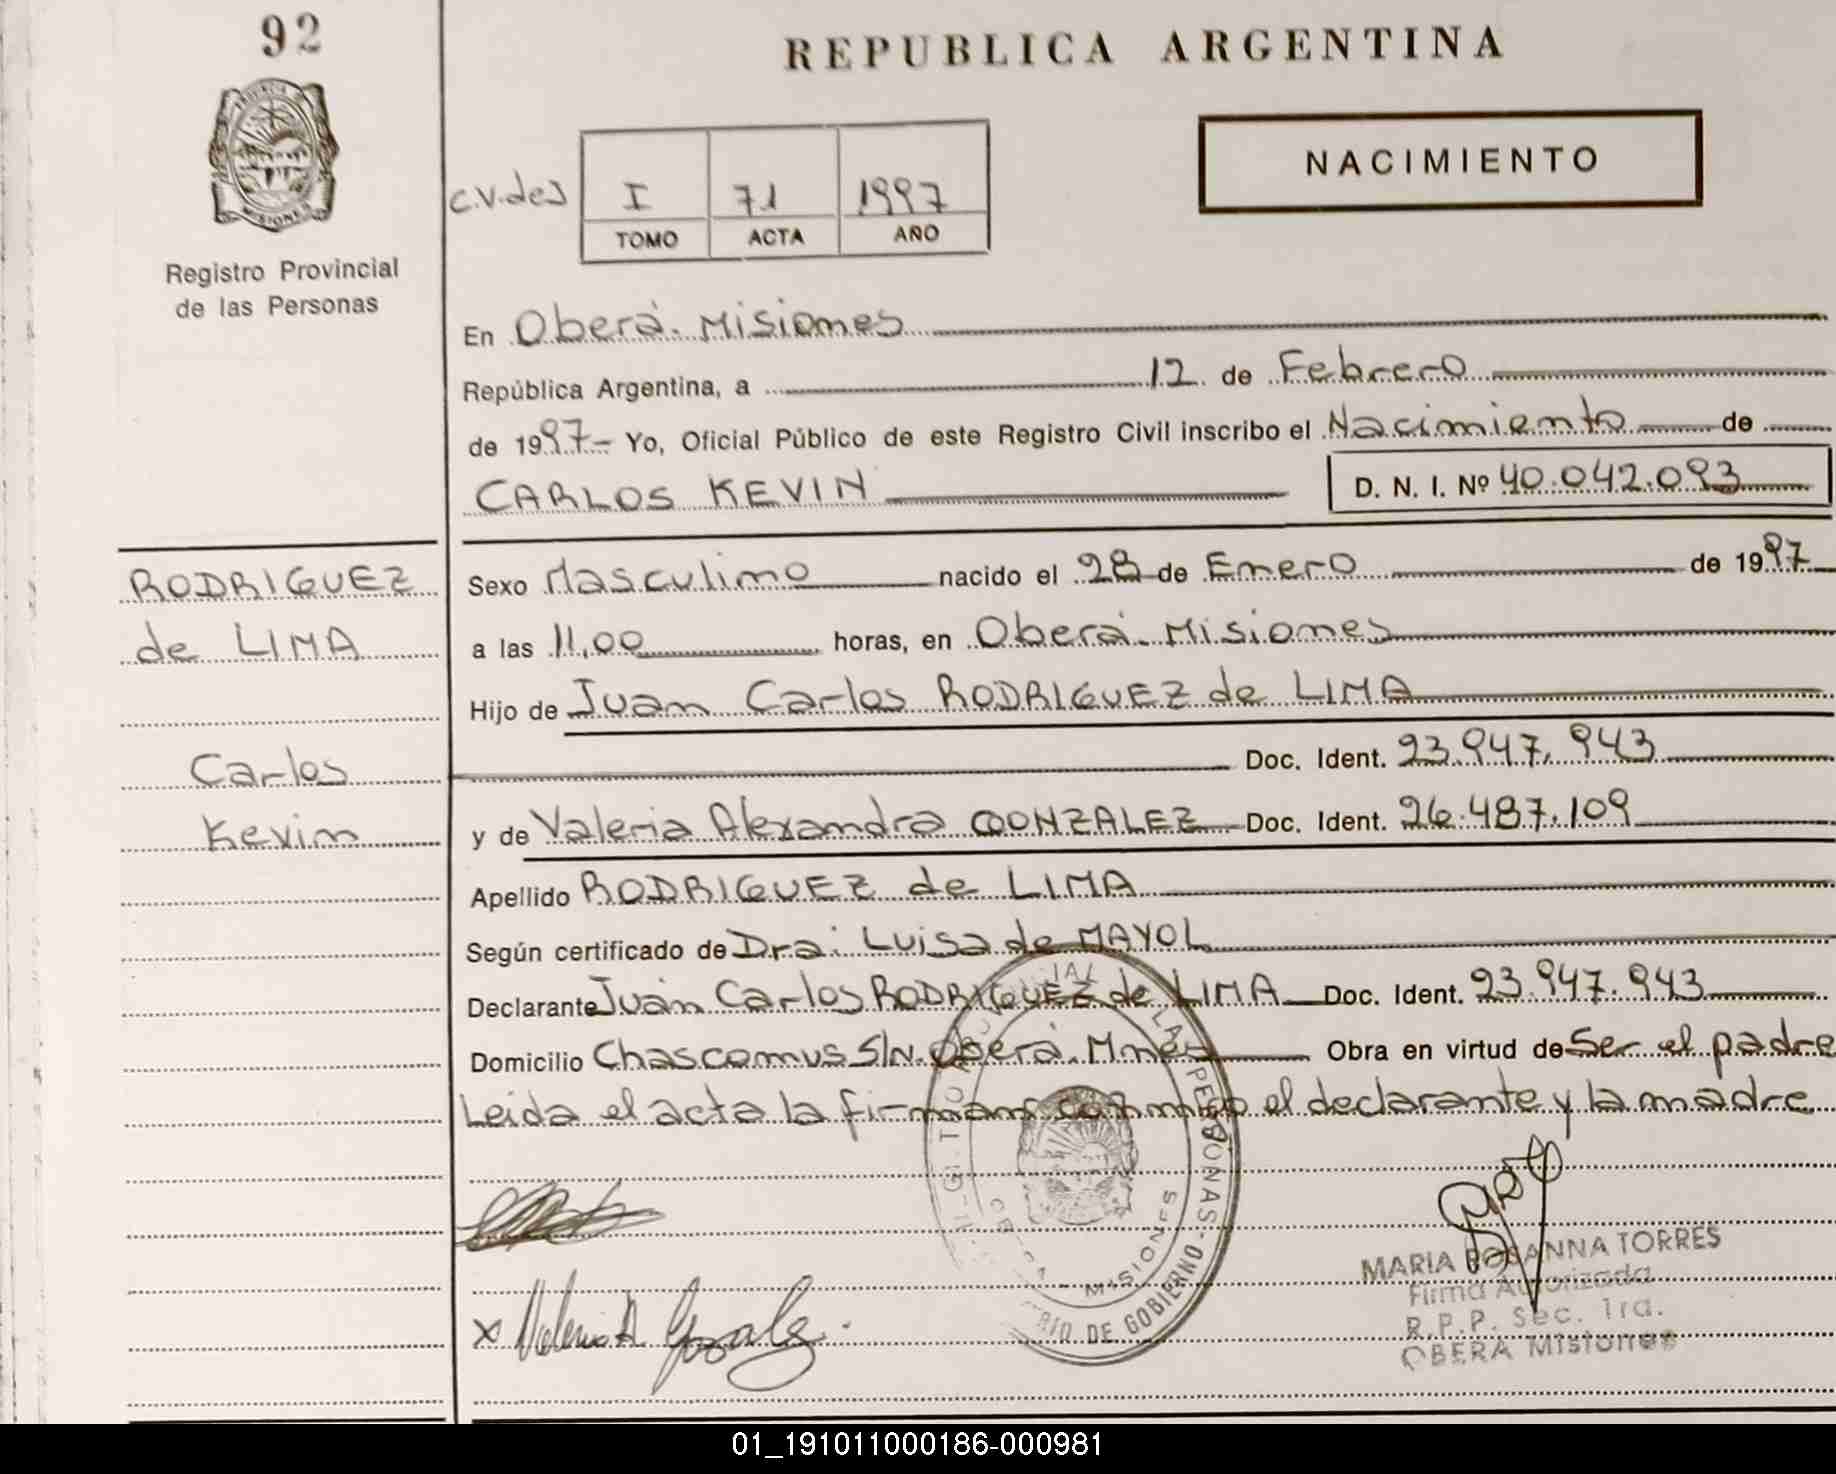 92
REPUBLICA ARGENTINA
PROVINCIA DE
MISIONES
Registro Provincial
de las Personas
NACIMIENTO
c.v.de J
I 71 1997
TOMO ACTA AÑO
En Oberá. Misiones
República Argentina, a 12 de Febrero
de 1997- Yo, Oficial Público de este Registro Civil inscribo el Nacimiento de
CARLOS KEVIN D. N. I. Nº 40.042.093
RODRIGUEZ
de LIMA
Carlos
Kevin
Sexo Masculino nacido el 28 de Enero de 1997
a las 11,00 horas, en Oberá. Misiones
Hijo de Juan Carlos RODRIGUEZ de LIMA
Doc. Ident. 23.947.943
y de Valeria Alexandra GONZALEZ Doc. Ident. 26.487.109
Apellido RODRIGUEZ de LIMA
Según certificado de Dra: Luisa de MAYOL
Declarante Juan Carlos RODRIGUEZ de LIMA Doc. Ident. 23.947.943
Domicilio Chascomus S/N. Oberá. Mnes Obra en virtud de Ser el padre
Leida el acta la firman conmigo el declarante y la madre
LAS PERSONAS
RIO DE GOBIERNO
MISIONES
x Valeria A Gonzalez.
MARIA ROSANNA TORRES
Firma Autorizada
R.P.P. Sec. 1ra.
OBERA Misiones
01_191011000186-000981